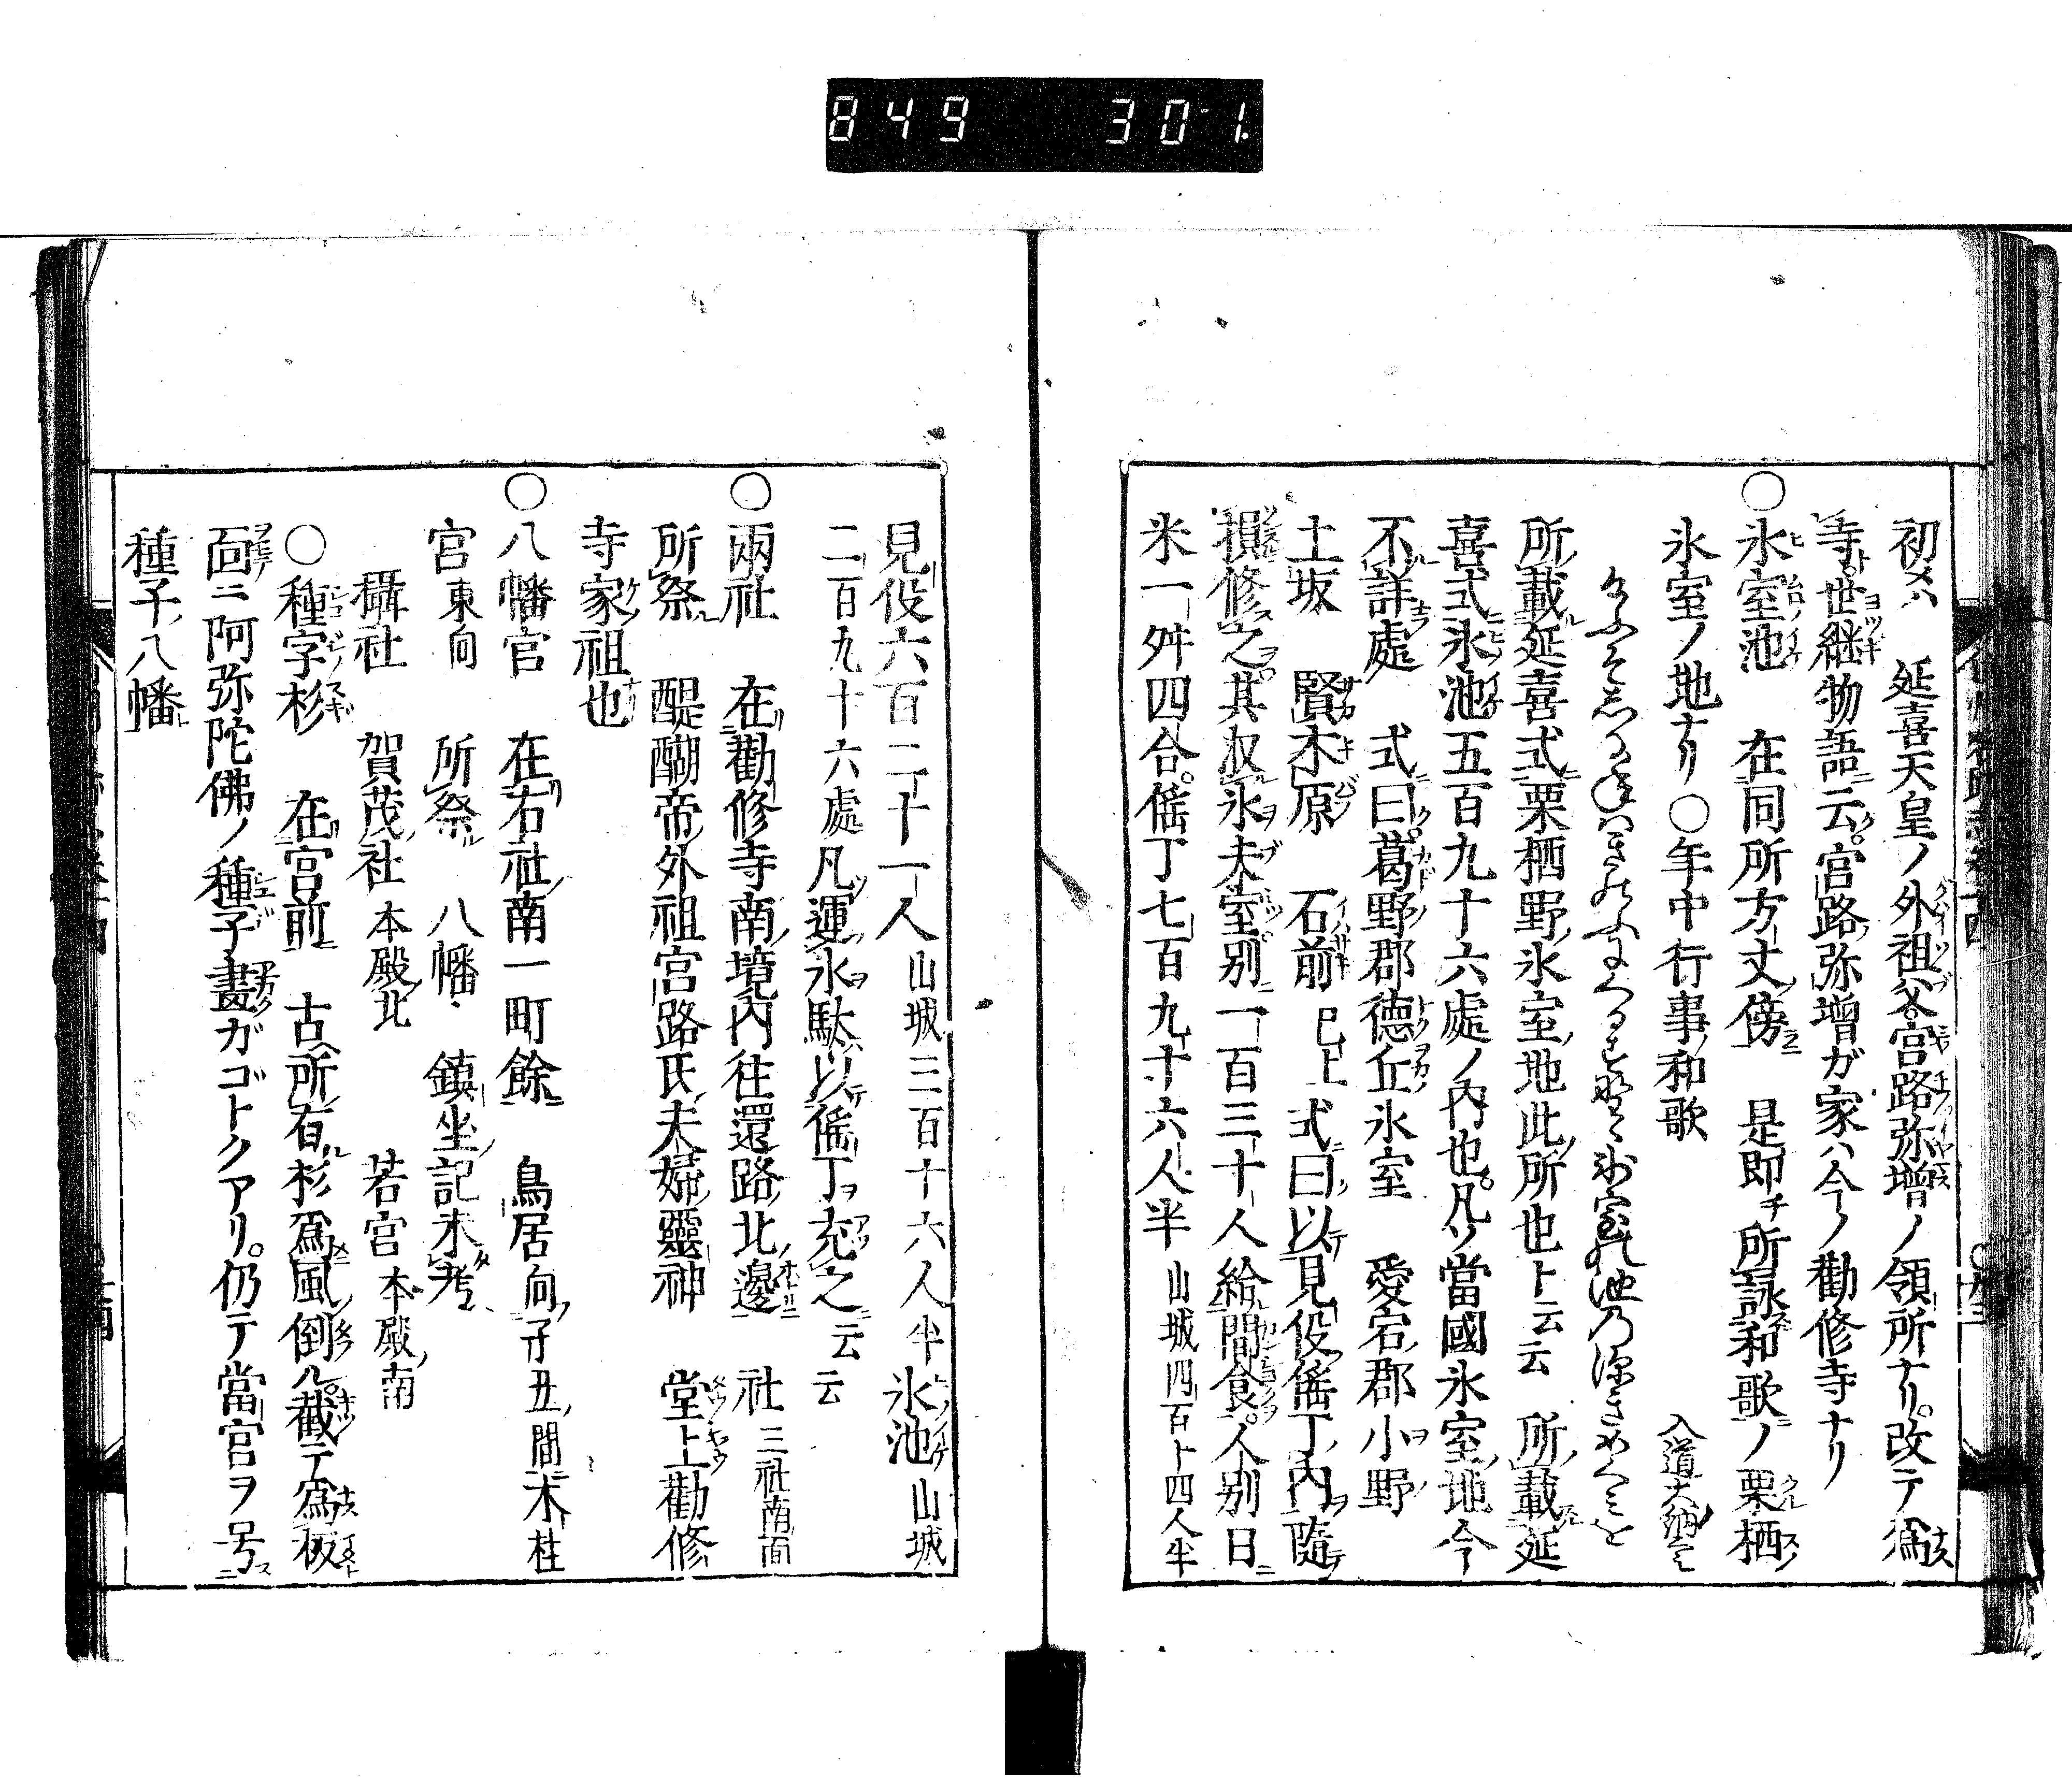 849 30-1.
初メハ 延喜天皇ノ外祖父宮路弥増ノ領所ナリ。改テ為
寺ト。世継物語ニ云。宮路弥増ガ家ハ今ノ勸修寺ナリ
〇氷室池 在同所方丈ノ傍ニ 是即チ所詠和歌ノ栗栖
氷室ノ地ナリ〇年中行事和歌 入道大納言
所載延喜式栗栖野氷室ノ地此所也ト云云 所載延
喜式氷池五百九十六處ノ內也。凡ソ當國氷室ノ地今
不詳處 式曰。葛野郡德丘氷室 愛宕郡小野
土坂 賢木原 石前 已上 式曰以見役傜丁ノ內隨
損修之。其収氷夫室別ニ一百三十人給間食。人別日ニ
米一舛四合。傜丁七百九十六人半 山城四百十四人半
見役六百二十一人 山城三百十六人半 氷池 山城
二百九十六處 凡運氷駄以傜丁ヲ充之云云
〇兩社 在勸修寺南境內往還路北邊 社 三社南面
所祭 醍醐帝外祖宮路氏夫婦靈神 堂上勸修
寺家祖也
〇八幡宮 在右社南一町餘 鳥居 向子丑間木柱
宮 東向 所祭 八幡 鎮坐記未考
攝社 賀茂社 本殿北 若宮 本殿南
〇種字杉 在宮前 古所有杉為風倒ル。截テ為板
面ニ阿弥陀佛ノ種子畫ガゴトクアリ。仍テ當宮ヲ号ス
種子八幡ト